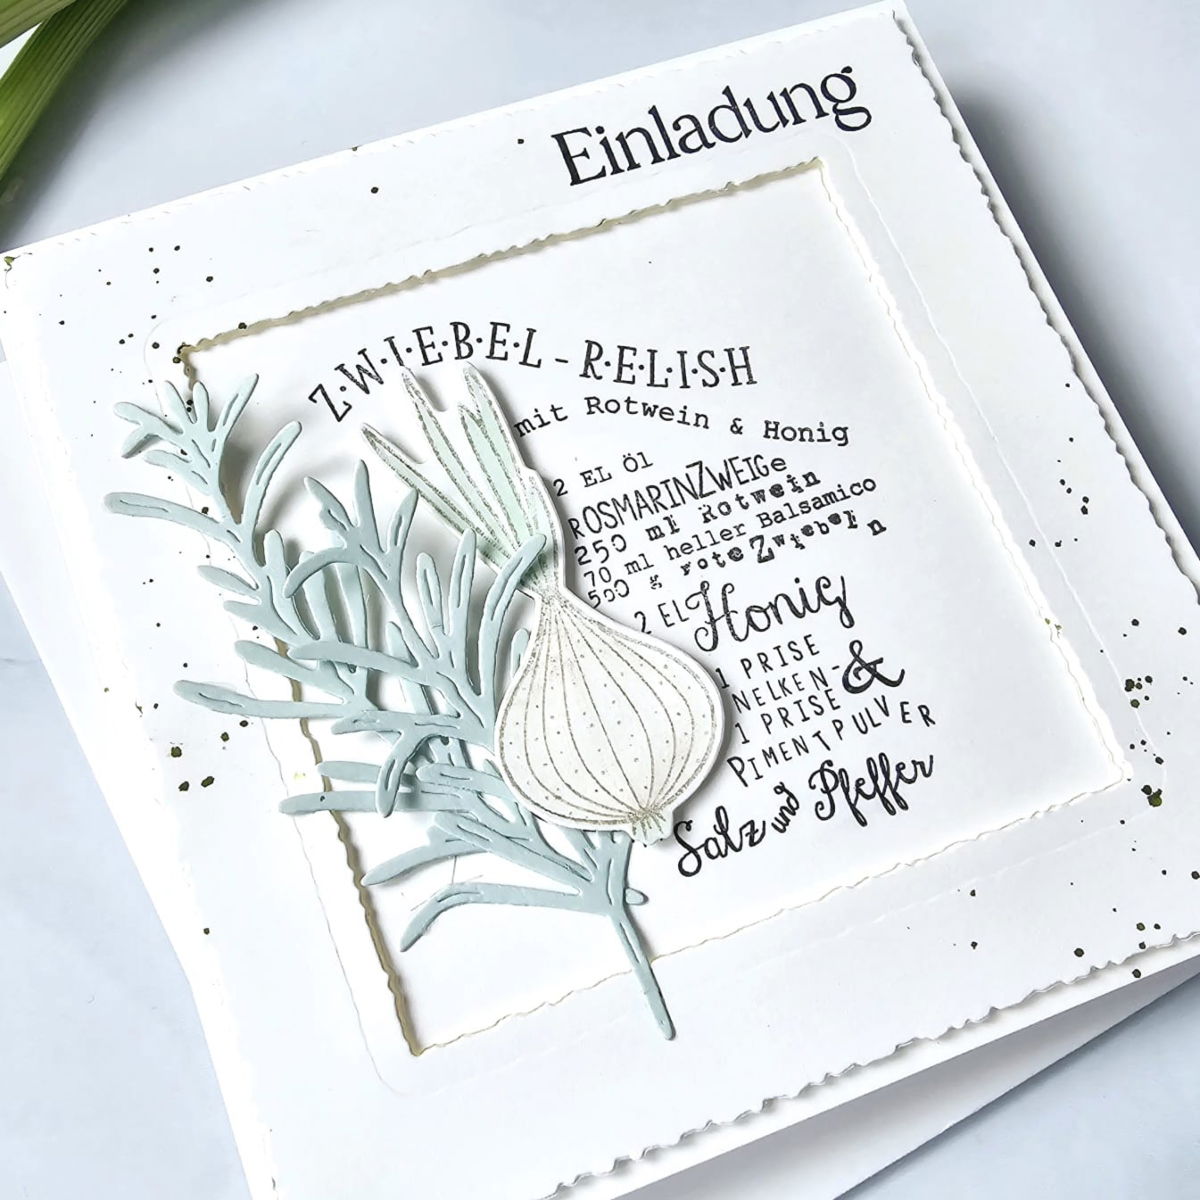 Einladung
Z·W·I·E·B·E·L-R·E·L·I·S·H
mit Rotwein & Honig
2 EL Öl
ROSMARINZWEIGe
250 ml Rotwein
70 ml heller Balsamico
500 g rote Zwiebeln
2 EL Honig
1 PRISE
NELKEN- &
1 PRISE
PIMENTPULVER
Salz und Pfeffer